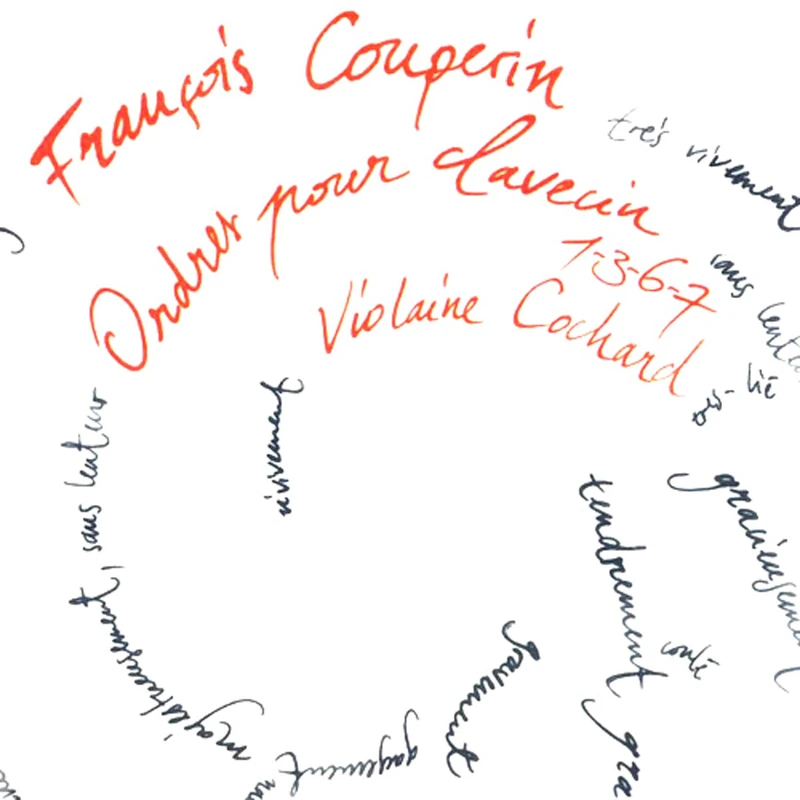 François Couperin
Ordres pour clavecin
1-3-6-7
Violaine Cochard
très vivement
sans lenteu
lié
gracieusement
tendrement
gra
vivement
gayement
majestueusement, sans lenteur